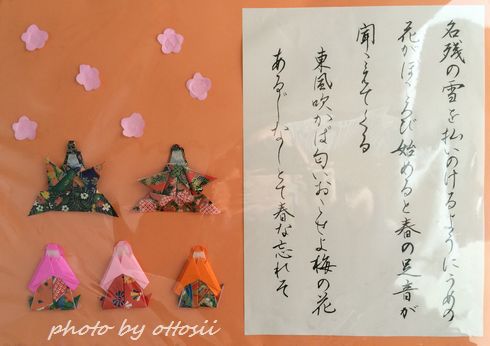 名残の雪を払いのけるようにうめの
花がほころび始めると春の足音が
聞こえてくる
東風吹かば匂いおこせよ梅の花
あるじなしとて春な忘れそ
photo by ottosii